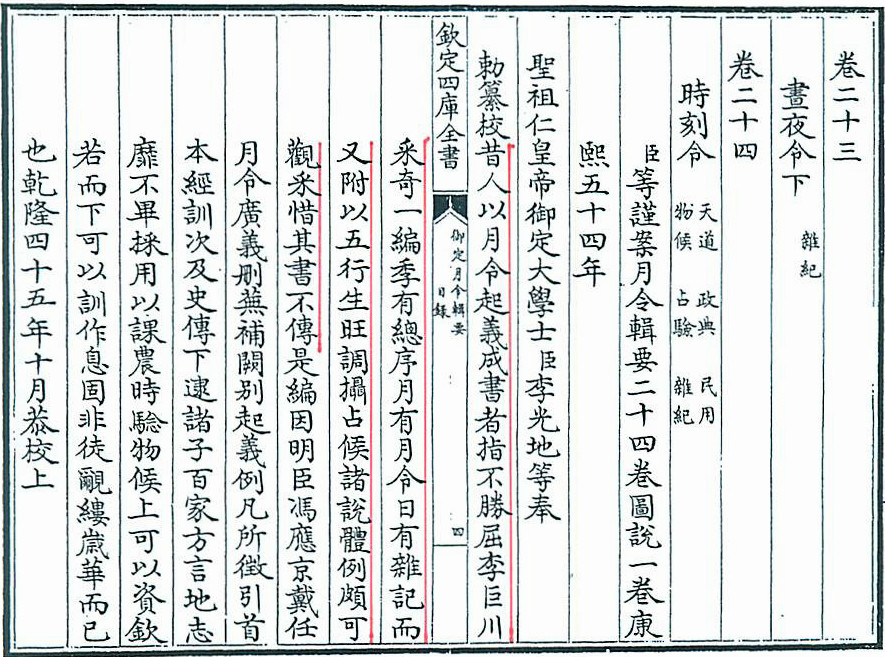 卷二十三
晝夜令下 雜紀
卷二十四
時刻令 天道 政典 民用
物候 占驗 雜紀
臣等謹案月令輯要二十四卷圖說一卷康
熙五十四年
聖祖仁皇帝御定大學士臣李光地等奉
勅纂校昔人以月令起義成書者指不勝屈李巨川
欽定四庫全書
御定月令輯要
目錄
四
采奇一編季有總序月有月令日有雜記而
又附以五行生旺調攝占候諸說體例頗可
觀采惜其書不傳是編因明臣馮應京戴任
月令廣義刪蕪補闕別起義例凡所徵引首
本經訓次及史傳下逮諸子百家方言地志
靡不畢採用以課農時驗物候上可以資欽
若而下可以訓作息固非徒覼縷歲華而已
也乾隆四十五年十月恭校上